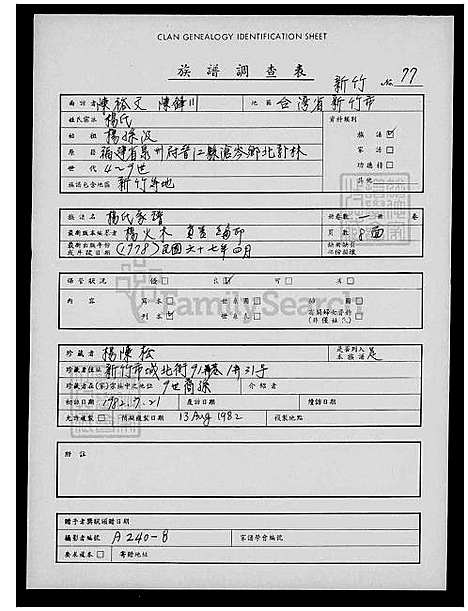 CLAN GENEALOGY IDENTIFICATION SHEET
族譜調查表
新竹 No. 77
面訪者 陳裕文 陳鋒川 地區 台灣省新竹市
姓氏宗派 楊氏 資料類別
始祖 楊 族譜
原籍 福建省泉州府晉江縣 鄉北 林 家譜
世代 4~9世 功德榜
族誌包含地區 新竹等地 其他
族譜名 楊氏家譜 册卷數 一册 卷
最新版本編著者 楊火木 頁數 8面
最新出版年份或片段日期 (1978)民國六十七年四月
保管狀況 優 良 可 劣
內容 寫本 世系圖
刊本 世系表
FamilySearch
珍藏者 楊陳松 是否列入本族譜 是
珍藏者住址 新竹市城北街91巷1弄31号
珍藏者在(家)宗族中之地位 9世裔孫 介紹者
初訪日期 1982.7.21 復訪日期 續訪日期
允許複製 預擬複製日期 13 Aug 1982 複製地點
附註
贈予者與賦贈日期
攝影者編號 A240-8 家譜學會編號
要求複本 寄贈地址